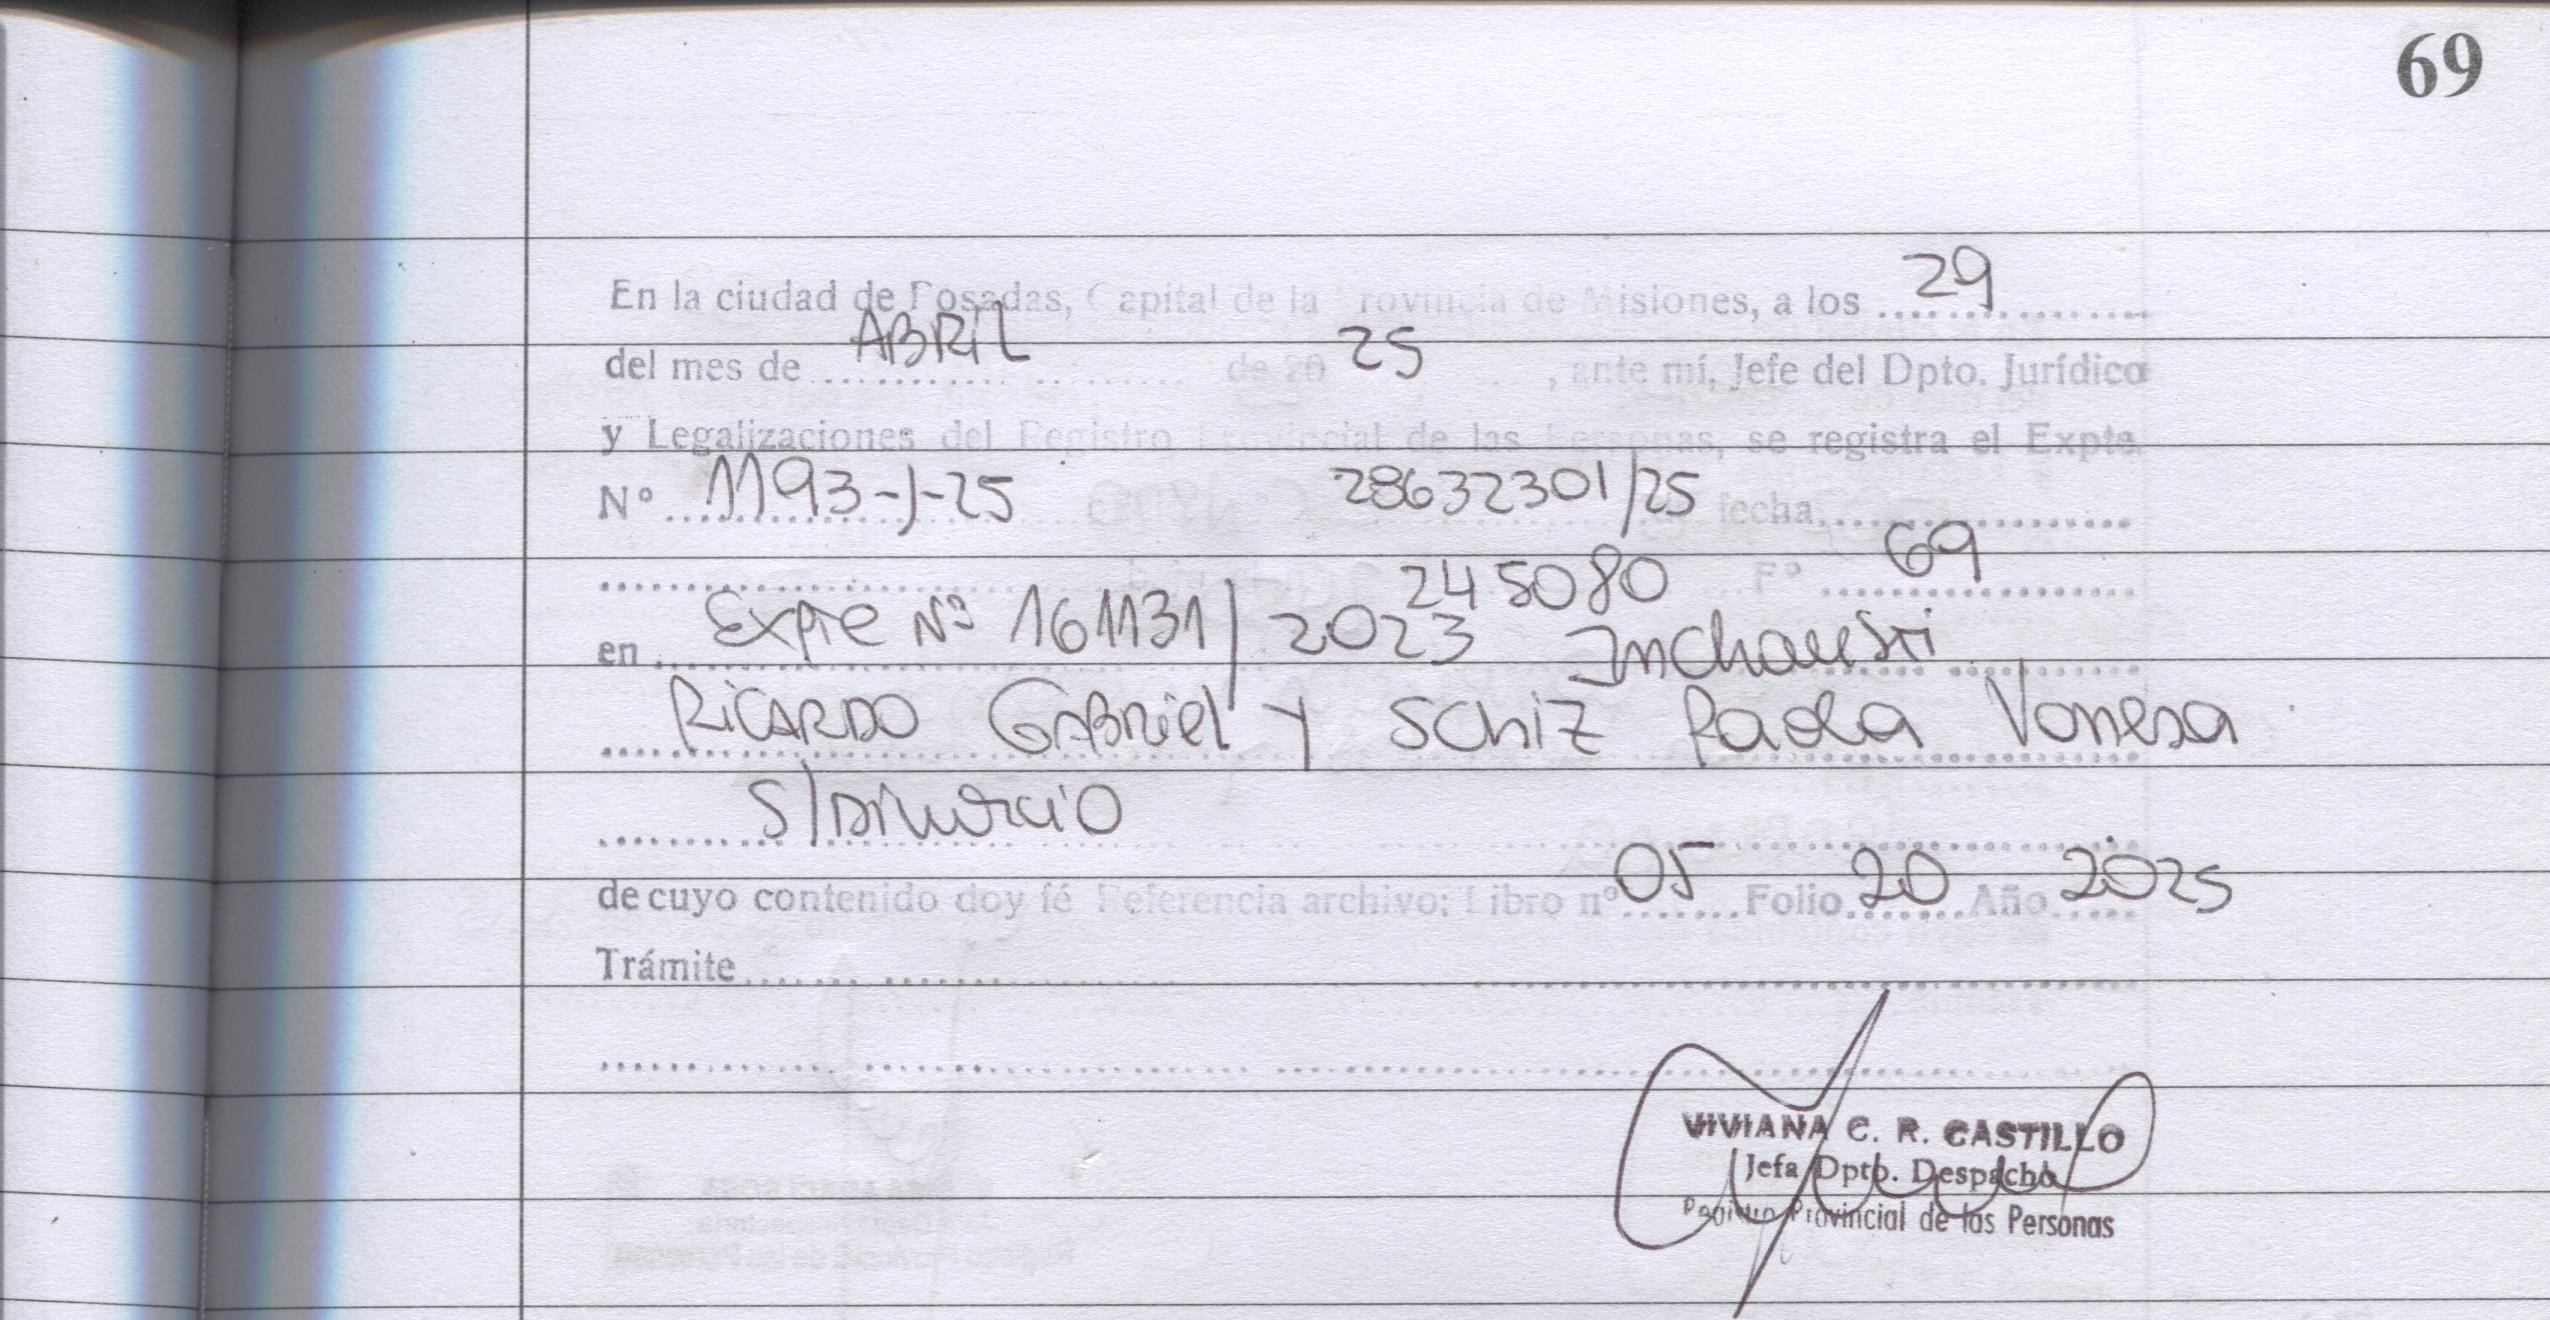 69
En la ciudad de Posadas, Capital de la Provincia de Misiones, a los 29
del mes de ABRIL de 20 25, ante mí, Jefe del Dpto. Jurídico
y Legalizaciones del Registro Provincial de las Personas, se registra el Expte.
Nº 1193-J-25 28632301/25 de fecha
245080 Fº 69
en Expte Nº 161131/2023 Inchausti
RICARDO GABRiel Y SchiZ Paola Vanesa
S/Divorcio
de cuyo contenido doy fé Referencia archivo: Libro nº 05 Folio 20 Año 2025
Trámite
VIVIANA C. R. CASTILLO
Jefa Dpto. Despacho
Registro Provincial de las Personas